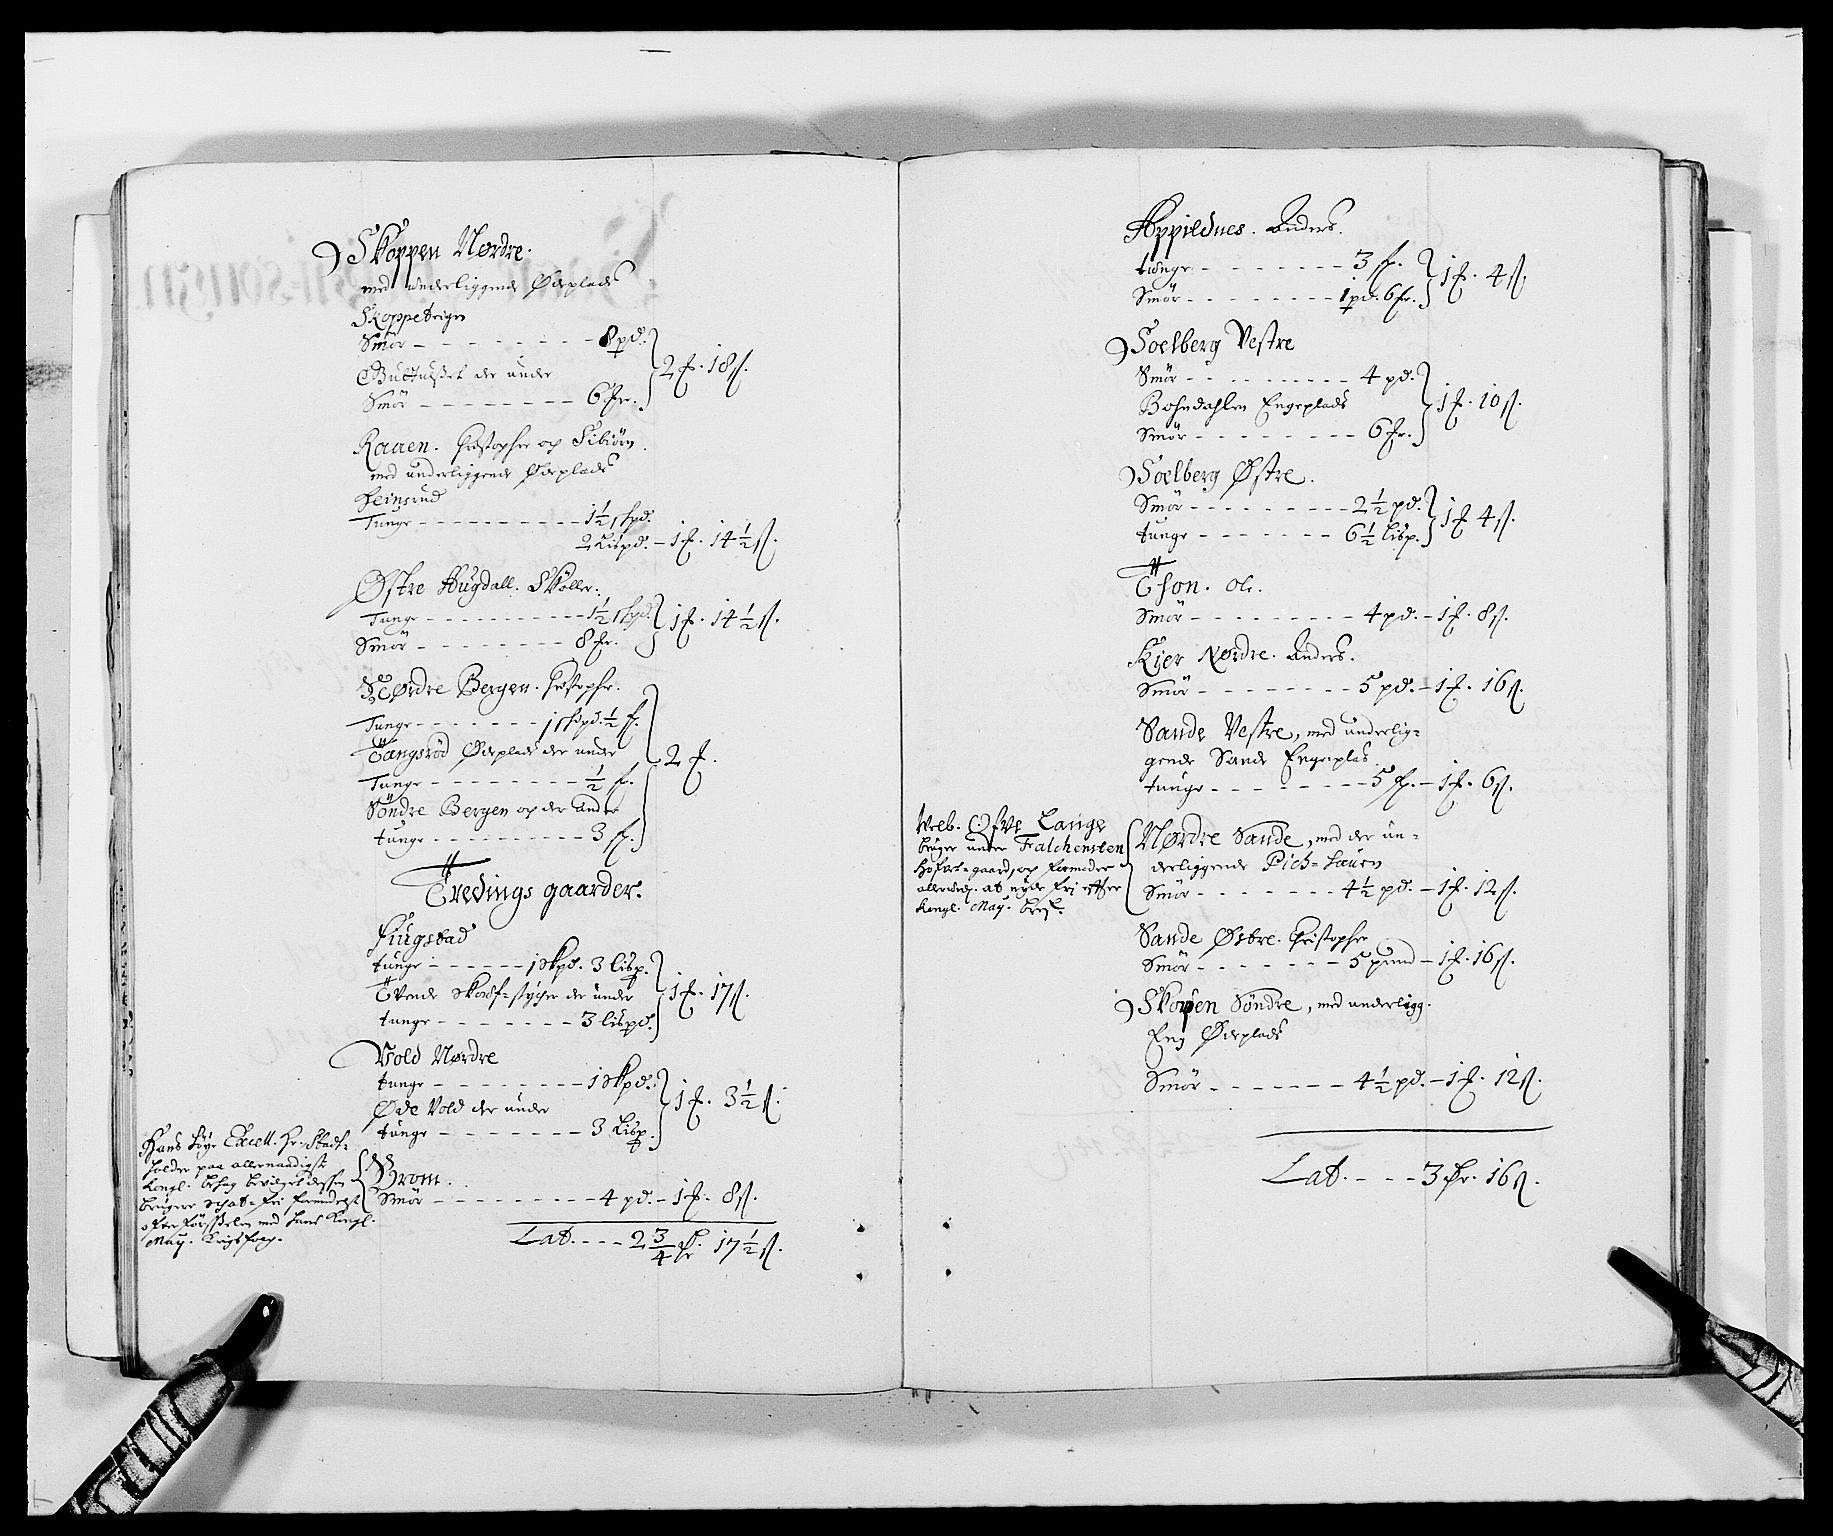 Skoppen Nordre.
med underliggende Ødeplads
Skoppeteigen
Smör - - - - - - - - 8 pd.
der under
2 f. 18 s.
Smör - - - - - - - 6 fr.
Raaen. Christopher og Sibiörn.
med underliggende Ødeplads
Heinsrud
Tunge - - - - - - - - - 1½ shpd.
2 Lispd. - 1 f. 14½ s.
Østre Hugdall. Sköller.
Tunge - - - - - - - - - 1½ shpd.
1 f. 14½ s.
Smör - - - - - - - - 8 fr.
Nordre Bergen. Christopher.
Tunge - - - - - - - 1 shpd. ½ f.
Tangsröd Ødeplads der under
2 f.
Tunge - - - - - - - - ½ f.
Söndre Bergen og der under
tunge - - - - - - - - - 3 f.
Tredings gaarder.
Fiugstad
tunge - - - - - - 1 Skpd. 3 lisp.
Tvende Skouf-stycher der under
1 f. 17 s.
tunge - - - - - - - 3 lispd.
Vold Nordre
tunge - - - - - - - - - 1 Skpd.
Øde Vold der under
1 f. 3½ s.
tunge - - - - - - - - 3 Lisp.
Hans Høye Excell. Hr. Stadt-
holder paa allernaadigste
Kongl. behag bevilget dessen
brugere Schat-fri formedelst
med hans Kongl.
May.
Brom.
Smör - - - - - - - - - - 4 pd. - 1 f. 8 s.
Lat. - - - 2¾ fr. 17½ s.
Appildnes. Anders.
tunge - - - - - - - - 3 f.
1 f. 4 s.
Smör - - - - - - - - 1 pd. 6 fr.
Soelberg Vestre
Smör - - - - - - - - - 4 pd.
Bohndahlen Engeplads
1 f. 10 s.
Smör - - - - - - - - - 6 fr.
Soelberg Østre.
Smör - - - - - - - - - 2½ pd.
1 f. 4 s.
tunge - - - - - - - 6½ Lisp.
Thon. Ole.
Smör - - - - - - - - - 4 pd. - 1 f. 8 s.
Kjer Nordre. Anders.
Smör - - - - - - - - - 5 pd. - 1 f. 16 s.
Sande Vestre, med underlig-
gende Sande Engeplas.
tunge - - - - - - - - - 5 f. - 1 f. 6 s.
Velb. Ofve Lange
bruger under Falchensten
Hofvet-gaard, og formoder
allerund. at nyde fri effter
Kongl. May. bref.
Nordre Sande, med der un-
derliggende Pich-hauen
Smör - - - - - - - - 4½ pd. - 1 f. 12 s.
Sande Østre. Christopher
Smör - - - - - - - - 5 pund - 1 f. 16 s.
Skopen Söndre, med underligg.
Eng Ødeplads
Smör - - - - - - - - 4½ pd. - 1 f. 12 s.
Lat. - - - 3 fr. 16 s.